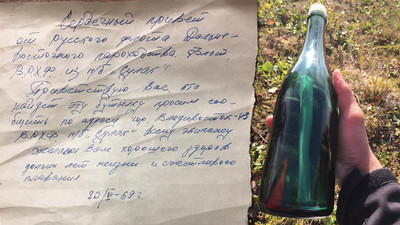 Сердечный привет
от Русского флота Дальне-
восточного пароходства.
ВРХФ из п/б „Сулак"
Приветствую Вас кто
найдет эту бутылку просим соо-
бщить по адресу гор. Владивосток-43
ВРХФ п/б „Сулак" всему экипажу
желаем Вам хорошего здоровья
долгих лет жизни и счастливого
плавания
20/VI-69 г.